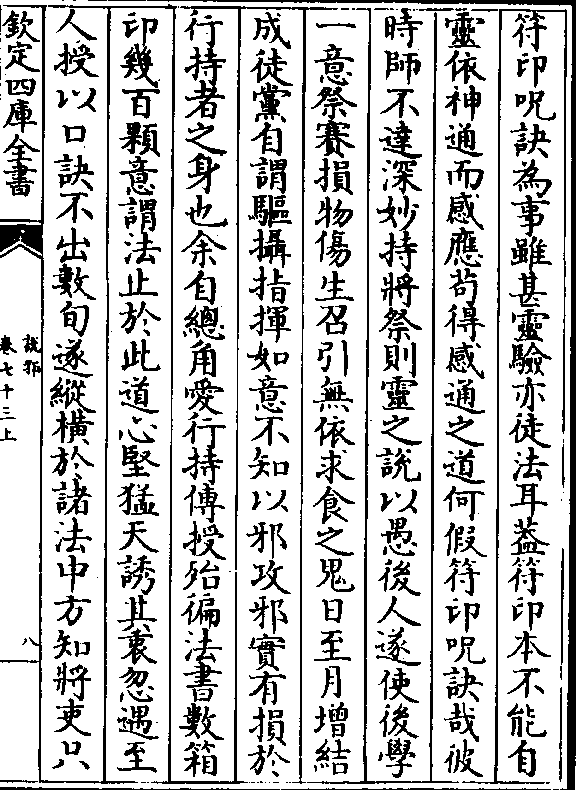 符印呪訣為事雖甚靈驗亦徒法耳葢符印本不能自
靈依神通而感應茍得感通之道何假符印呪訣哉彼
時師不達深妙持將祭則靈之說以愚後人遂使後學
一意祭賽損物傷生召引無依求食之鬼日至月增結
成徒黨自謂驅攝指揮如意不知以邪攻邪實有損於
行持者之身也余自總角愛行持傳授殆徧法書數箱
印幾百顆意謂法止於此道心堅猛天誘其衷忽遇至
人授以口訣不出數旬遂縱横於諸法中方知將吏只
欽定四庫全書
說郛
卷七十三上
八